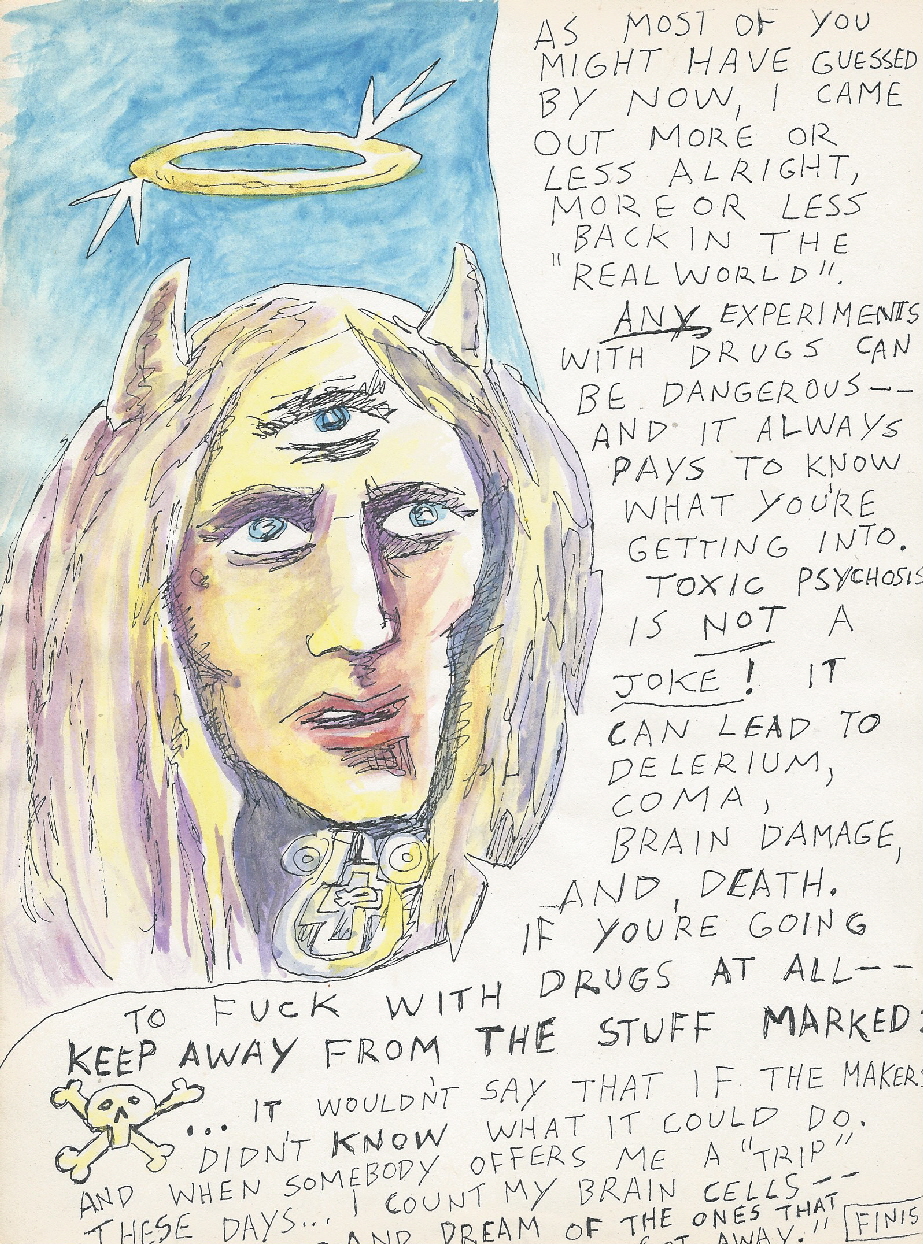 AS MOST OF YOU
MIGHT HAVE GUESSED
BY NOW, I CAME
OUT MORE OR
LESS ALRIGHT,
MORE OR LESS
BACK IN THE
"REAL WORLD".
ANY EXPERIMENTS
WITH DRUGS CAN
BE DANGEROUS--
AND IT ALWAYS
PAYS TO KNOW
WHAT YOU'RE
GETTING INTO.
TOXIC PSYCHOSIS
IS NOT A
JOKE! IT
CAN LEAD TO
DELERIUM,
COMA,
BRAIN DAMAGE,
AND DEATH.
IF YOU'RE GOING
TO FUCK WITH DRUGS AT ALL--
KEEP AWAY FROM THE STUFF MARKED:
... IT WOULDN'T SAY THAT IF THE MAKER
DIDN'T KNOW WHAT IT COULD DO.
AND WHEN SOMEBODY OFFERS ME A "TRIP"
THESE DAYS... I COUNT MY BRAIN CELLS--
AND DREAM OF THE ONES THAT
GOT AWAY." FINIS